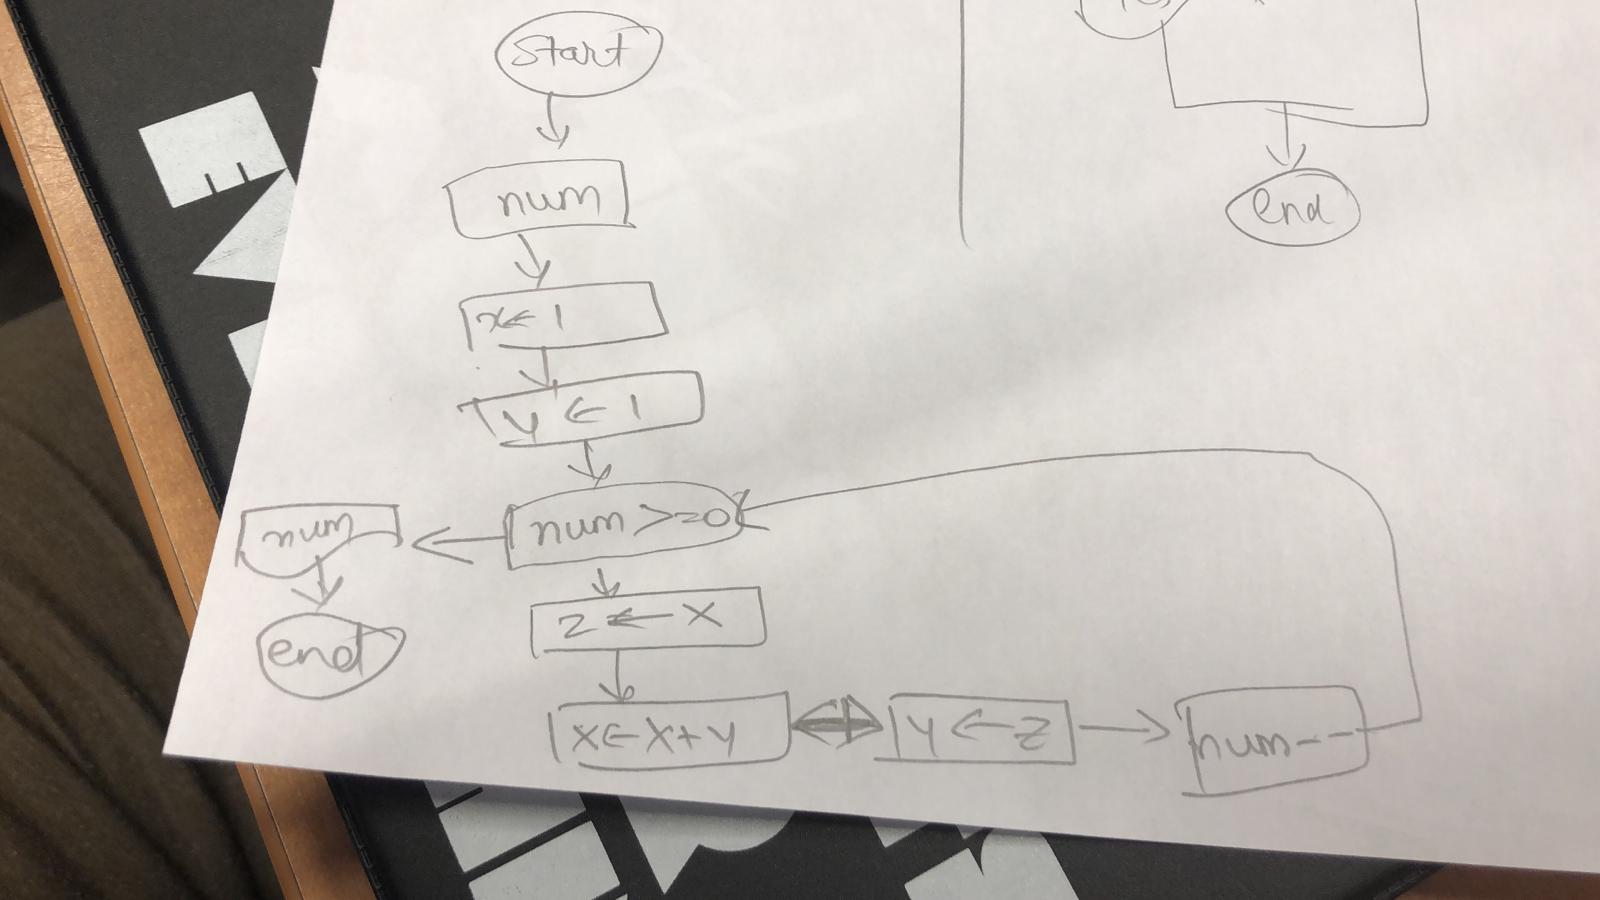 start
num
x← 1
y ← 1
num >=0
num
end
z ← x
x← x+y
y ← z
num--
end